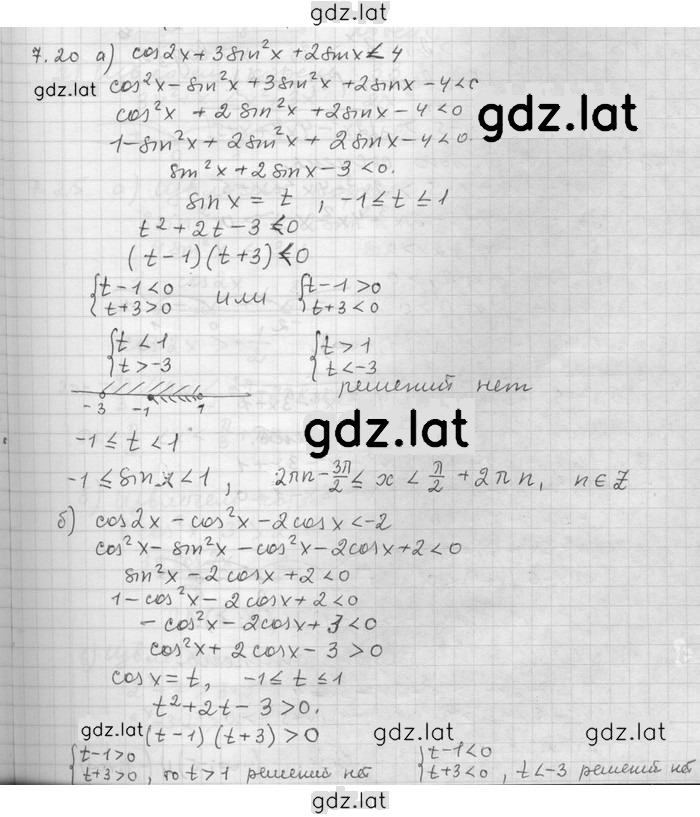 gdz.lat
7.20 а) cos2x + 3sin²x + 2sinx < 4
gdz.lat cos²x - sin²x + 3sin²x + 2sinx - 4 < 0
cos²x + 2sin²x + 2sinx - 4 < 0 gdz.lat
1 - sin²x + 2sin²x + 2sinx - 4 < 0.
sin²x + 2sinx - 3 < 0.
sinx = t, -1 ≤ t ≤ 1
t² + 2t - 3 < 0
(t-1)(t+3) < 0
{t-1<0 или {t-1>0
{t+3>0 {t+3<0
{t<1 {t>1
{t>-3 {t<-3
решений нет
-3 -1 1
gdz.lat
-1 ≤ t < 1
-1 ≤ sinx < 1, 2πn - 3π/2 ≤ x < π/2 + 2πn, n∈Z
б) cos2x - cos²x - 2cosx < -2
cos²x - sin²x - cos²x - 2cosx + 2 < 0
sin²x - 2cosx + 2 < 0
1 - cos²x - 2cosx + 2 < 0
- cos²x - 2cosx + 3 < 0
cos²x + 2cosx - 3 > 0
cosx = t, -1 ≤ t ≤ 1
t² + 2t - 3 > 0.
gdz.lat (t-1)(t+3) > 0 gdz.lat gdz.lat
{t-1>0 {t-1<0
{t+3>0, то t>1 решений нет {t+3<0, t<-3 решений нет
gdz.lat